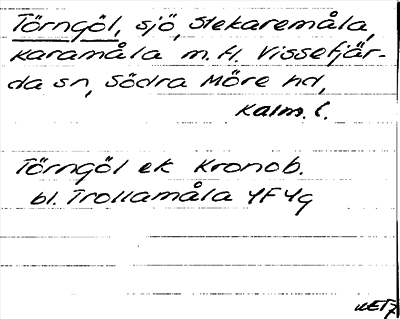 Törngöl, sjö, Slekaremåla,
Karamåla m. fl. Vissefjär-
da sn, Södra Möre hd,
Kalm. l.
Törngöl ek Kronob.
bl. Trollamåla 4F4g